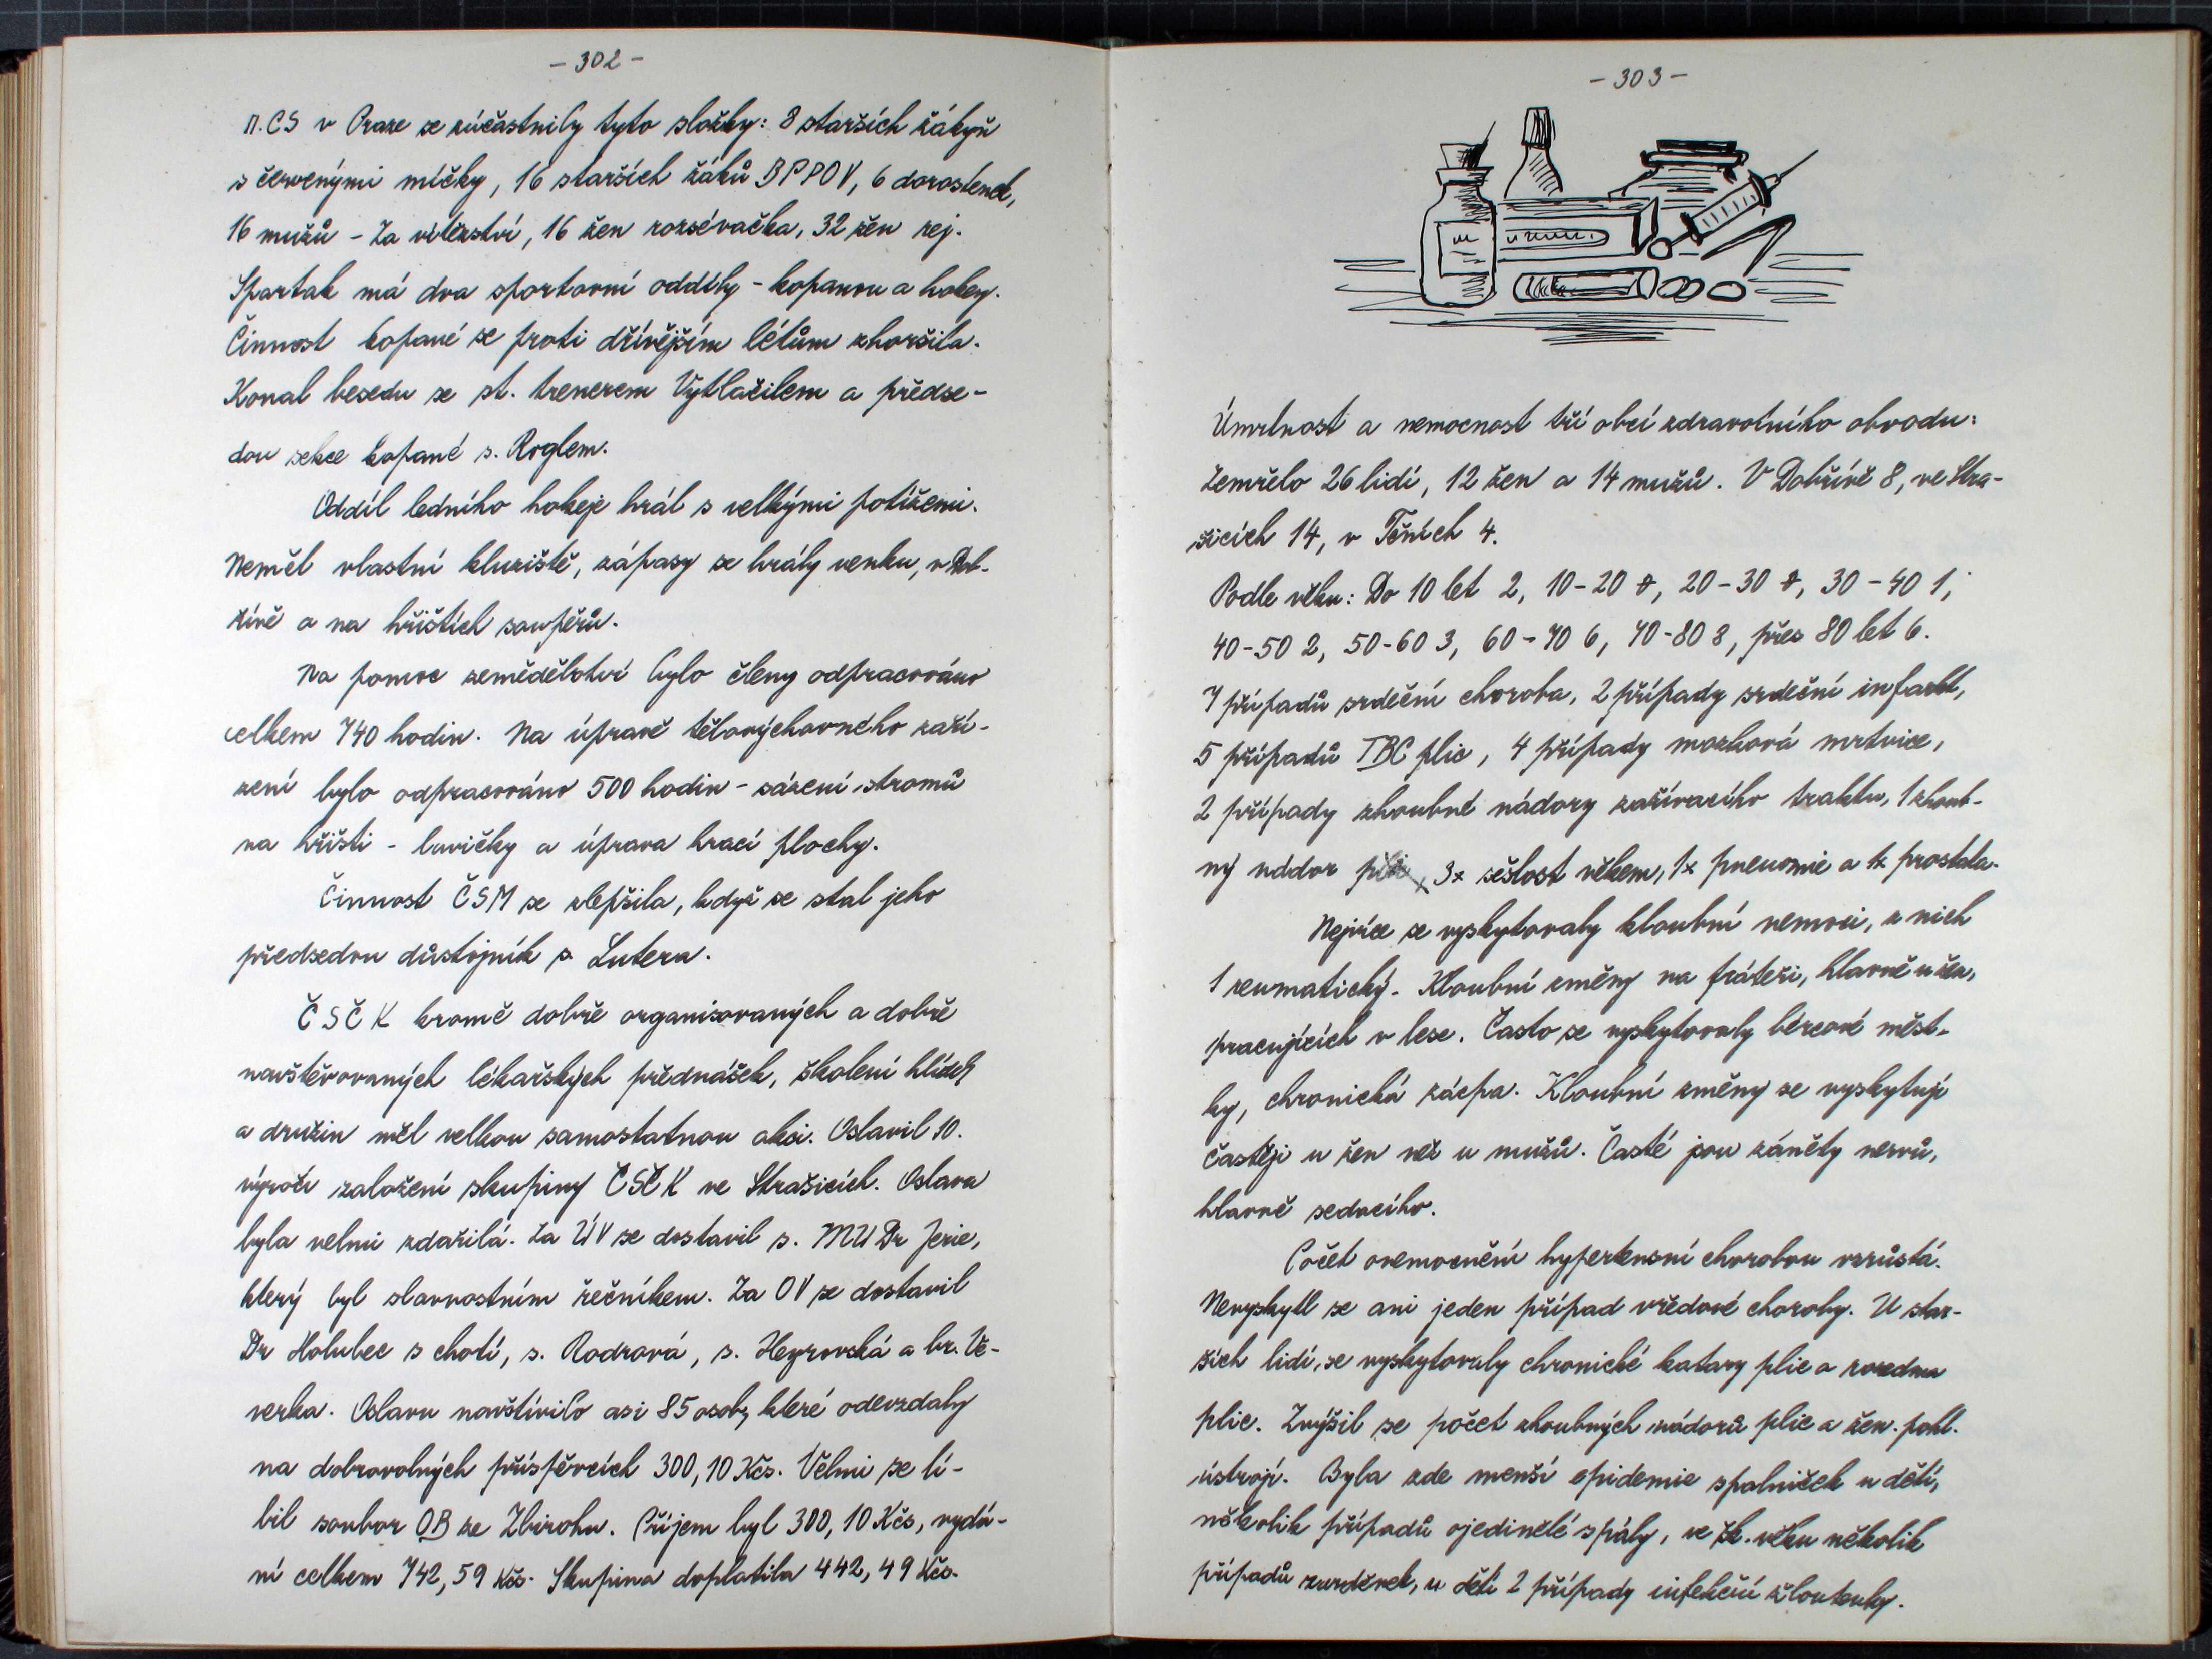 - 302 -
II. CS v Praze se zúčastnily tyto složky: 8 starších žákyň
s červenými míčky, 16 starších žáků BPPOV, 6 dorostenek,
16 mužů - Za vítězství, 16 žen rozsévačka, 32 žen rej.
Spartak má dva sportovní oddíly - kopanou a hokey.
Činnost kopané se proti dřívějším létům zhoršila.
Konal besedu se st. trenerem Vytlačilem a předse-
dou sekce kopané s. Roglem.
Oddíl ledního hokeje hrál s velkými potížemi.
Neměl vlastní kluziště, zápasy se hrály venku, v Dob-
řívě a na hřištích soupěřů.
Na pomoc zemědělství bylo členy odpracováno
celkem 740 hodin. Na úpravě tělovýchovného zaří-
zení bylo odpracováno 500 hodin - sázení stromů
na hřišti - lavičky a úprava hrací plochy.
Činnost ČSM se zlepšila, když se stal jeho
předsedou důstojník s. Lutera.
ČSČK kromě dobře organisovaných a dobře
navštěvovaných lékařských přednášek, školení hlídek
a družin měl velkou samostatnou akci. Oslavil 10.
výročí založení skupiny ČSČK ve Strašicích. Oslava
byla velmi zdařilá. Za ÚV se dostavil s. MUDr Jerie,
který byl slavnostním řečníkem. Za OV se dostavil
Dr Holubec s chotí, s. Rodrová, s. Heyrovská a br. Ve-
verka. Oslavu navštívilo asi 85 osob, které odevzdaly
na dobrovolných příspěvcích 300,10 Kčs. Velmi se lí-
bil soubor OB ze Zbiroha. Příjem byl 300,10 Kčs, vydá-
ní celkem 742,59 Kčs. Skupina doplatila 442,49 Kčs.
- 303 -
Úmrtnost a nemocnost tří obcí zdravotního obvodu:
Zemřelo 26 lidí, 12 žen a 14 mužů. V Dobřívě 8, ve Stra-
šicích 14, v Těních 4.
Podle věku: Do 10 let 2, 10-20 0, 20-30 0, 30-40 1,
40-50 2, 50-60 3, 60-70 6, 70-80 8, přes 80 let 6.
7 případů srdeční choroba, 2 případy srdeční infarkt,
5 případů TBC plic, 4 případy mozková mrtvice,
2 případy zhoubné nádory zažívacího traktu, 1 zhoub-
ný nádor plic, 3x sešlost věkem, 1x pneumonie a 1x prostata.
Nejvíce se vyskytovaly kloubní nemoci, z nich
1 reumatický. Kloubní změny na páteři, hlavně u žen,
pracujících v lese. Často se vyskytovaly bércové měst-
ky, chronická zácpa. Kloubní změny se vyskytují
častěji u žen než u mužů. Časté jsou záněty nervů,
hlavně sedacího.
Počet onemocnění hypertensní chorobou vzrůstá.
Nevyskytl se ani jeden případ vředové choroby. U star-
ších lidí, se vyskytovaly chronické katary plic a rozedma
plic. Zvýšil se počet zhoubných nádorů plic a žen. pohl.
ústrojí. Byla zde menší epidemie spalniček u dětí,
několik případů ojedinělé spály, ve šk. věku několik
případů zarděnek, u dětí 2 případy infekční žloutenky.